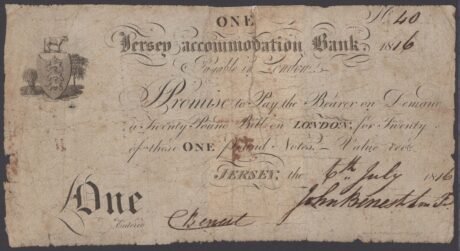 ONE
No. 40
Jersey accommodation Bank, 1816
Payable in London.
I Promise to Pay the Bearer on Demand
a Twenty Pound Bill on LONDON, for Twenty
of these ONE pound Notes. - Value recd.
JERSEY, the 6th July 1816
One
Entered
Benest
John Benest